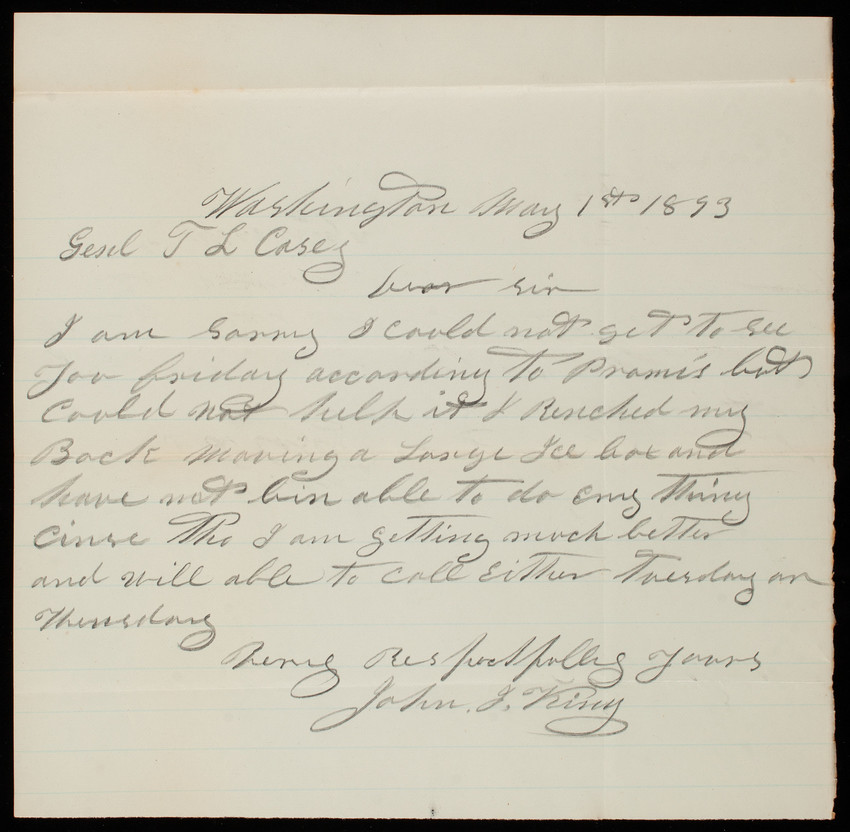 Washington May 1st 1893
Genl T L Casey
Dear Sir
I am sorry I could not get to see
You friday according to Promis but
Could not help it I Renched my
Back moving a Large Ice box and
have not bin able to do eny thing
cinse Tho I am getting much better
and will able to call Either Tuesday or
Thursday
Verey Respectfulley Yours
John. J. King